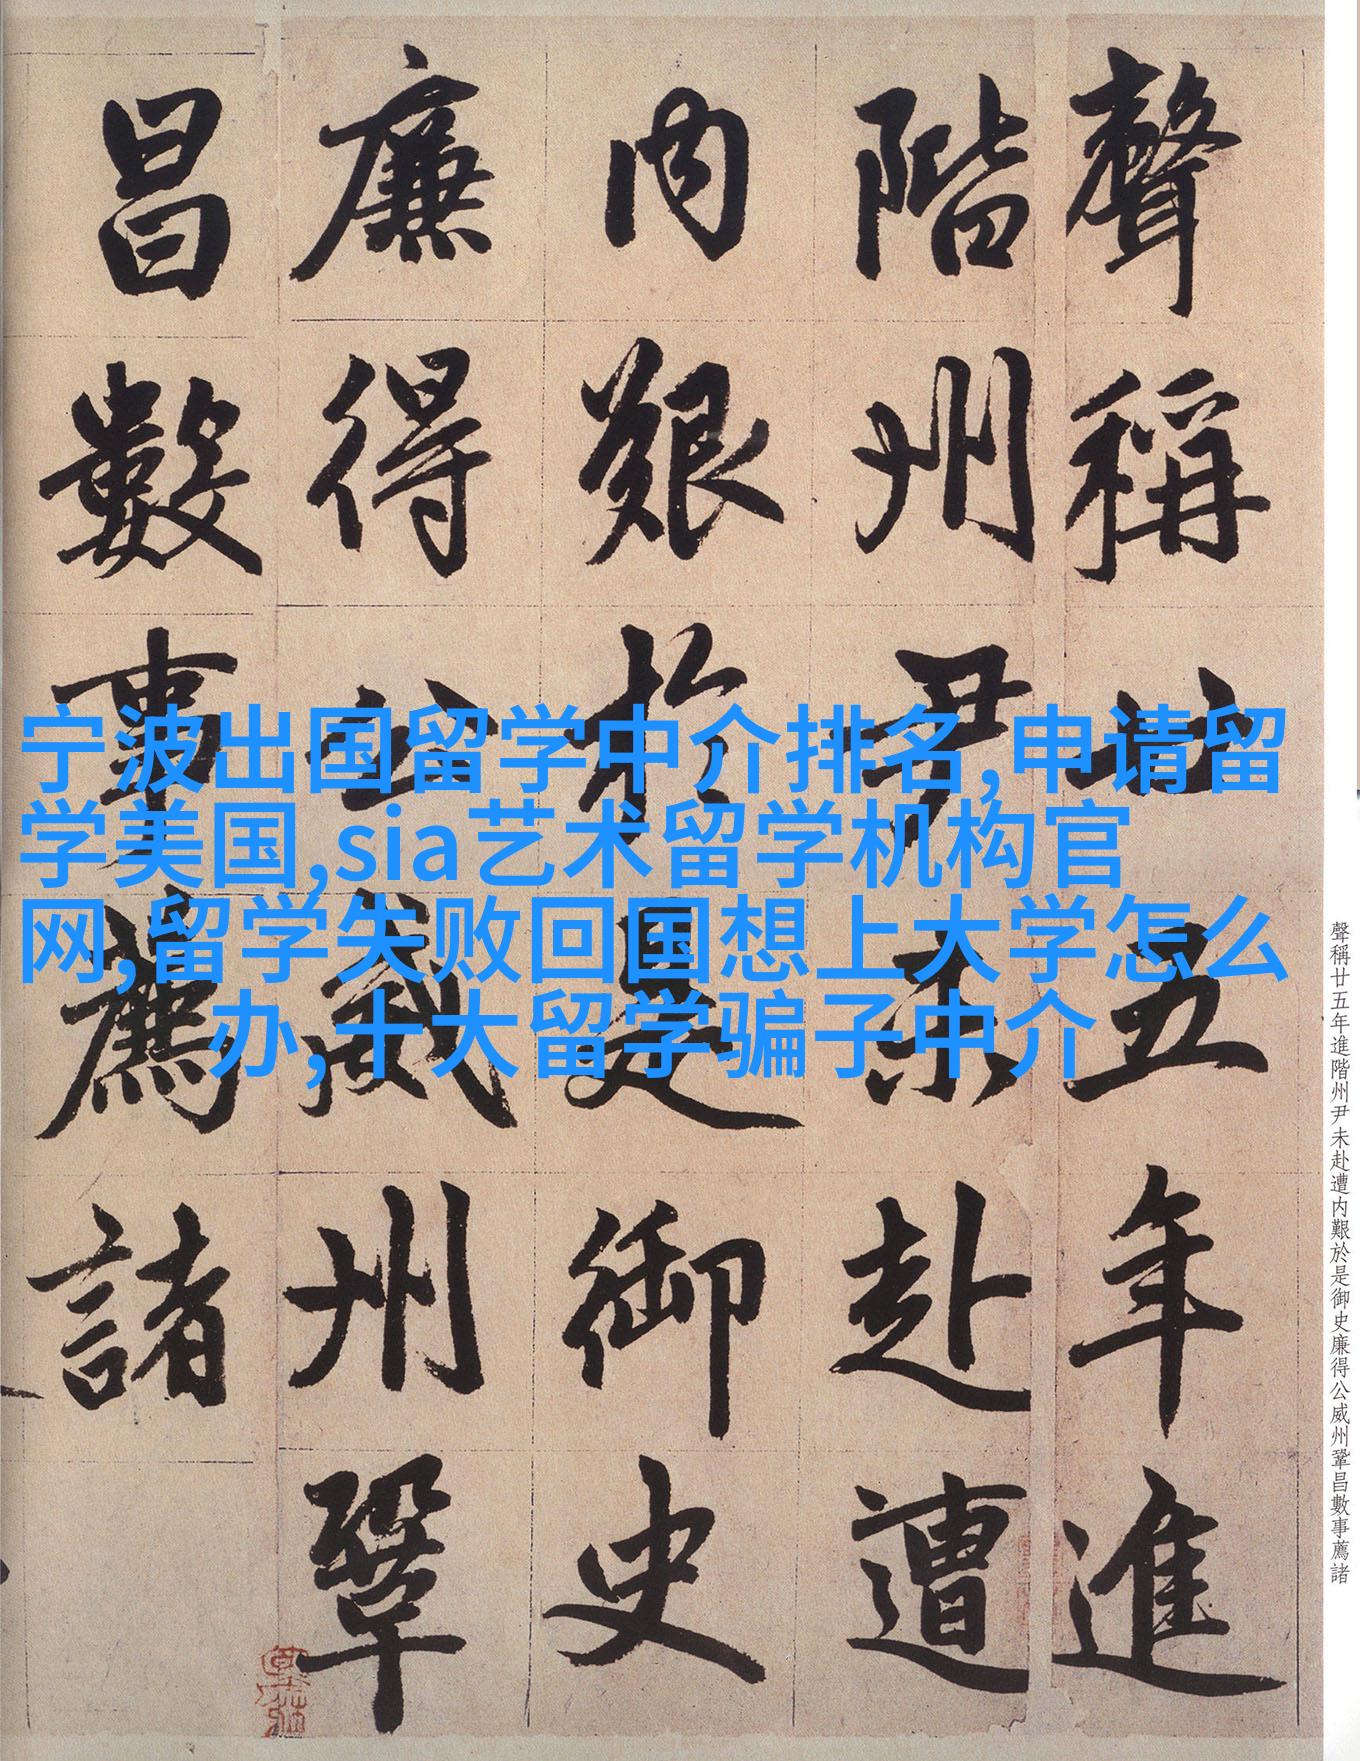 聲稱廿五年進
階州尹未赴遭
内艱於是御史
廉得公威州鞏
昌數事薦諸
宁波出国留学中介排名,申请留
学美国,sia艺术留学机构官
网,留学失败回国想上大学怎么
办,十大留学骗子中介
聲稱廿五年進階州尹未赴遭内艱於是御史廉得公威州鞏昌數事薦諸